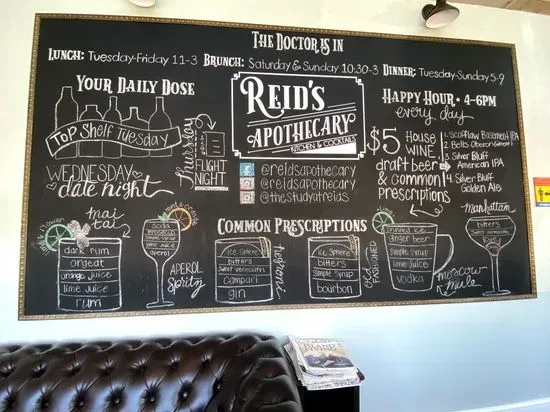 THE DOCTOR IS IN
LUNCH: Tuesday-Friday 11-3 BRUNCH: Saturday & Sunday 10:30-3 DINNER: Tuesday-Sunday 5-9
YOUR DAILY DOSE
TOP SHELF TUESDAY
WEDNESDAY
date night
Thursday
FLIGHT
NIGHT
REID'S
APOTHECARY
KITCHEN & COCKTAILS
@reidsapothecary
@reidsapothecary
@thestudyatreids
HAPPY HOUR • 4-6PM
every day
$5 HOUSE
WINE
draft beer
& common
Prescriptions
1. Scofflaw Basement IPA
2. Bells Oberon (Wheat)
3. Silver Bluff
American IPA
4. Silver Bluff
Golden Ale
COMMON PRESCRIPTIONS
mai
tai
dark rum
orgeat
orange juice
lime juice
rum
soda
simple syrup
lime juice
aperol
APEROL
Spritz
ice sphere
bitters
sweet vermouth
campari
gin
negroni
ice sphere
bitters
simple syrup
bourbon
old
FASHIONED
lime
crushed ice
ginger beer
simple syrup
lime juice
vodka
moscow
mule
manhattan
bitters
sweet vermouth
rye